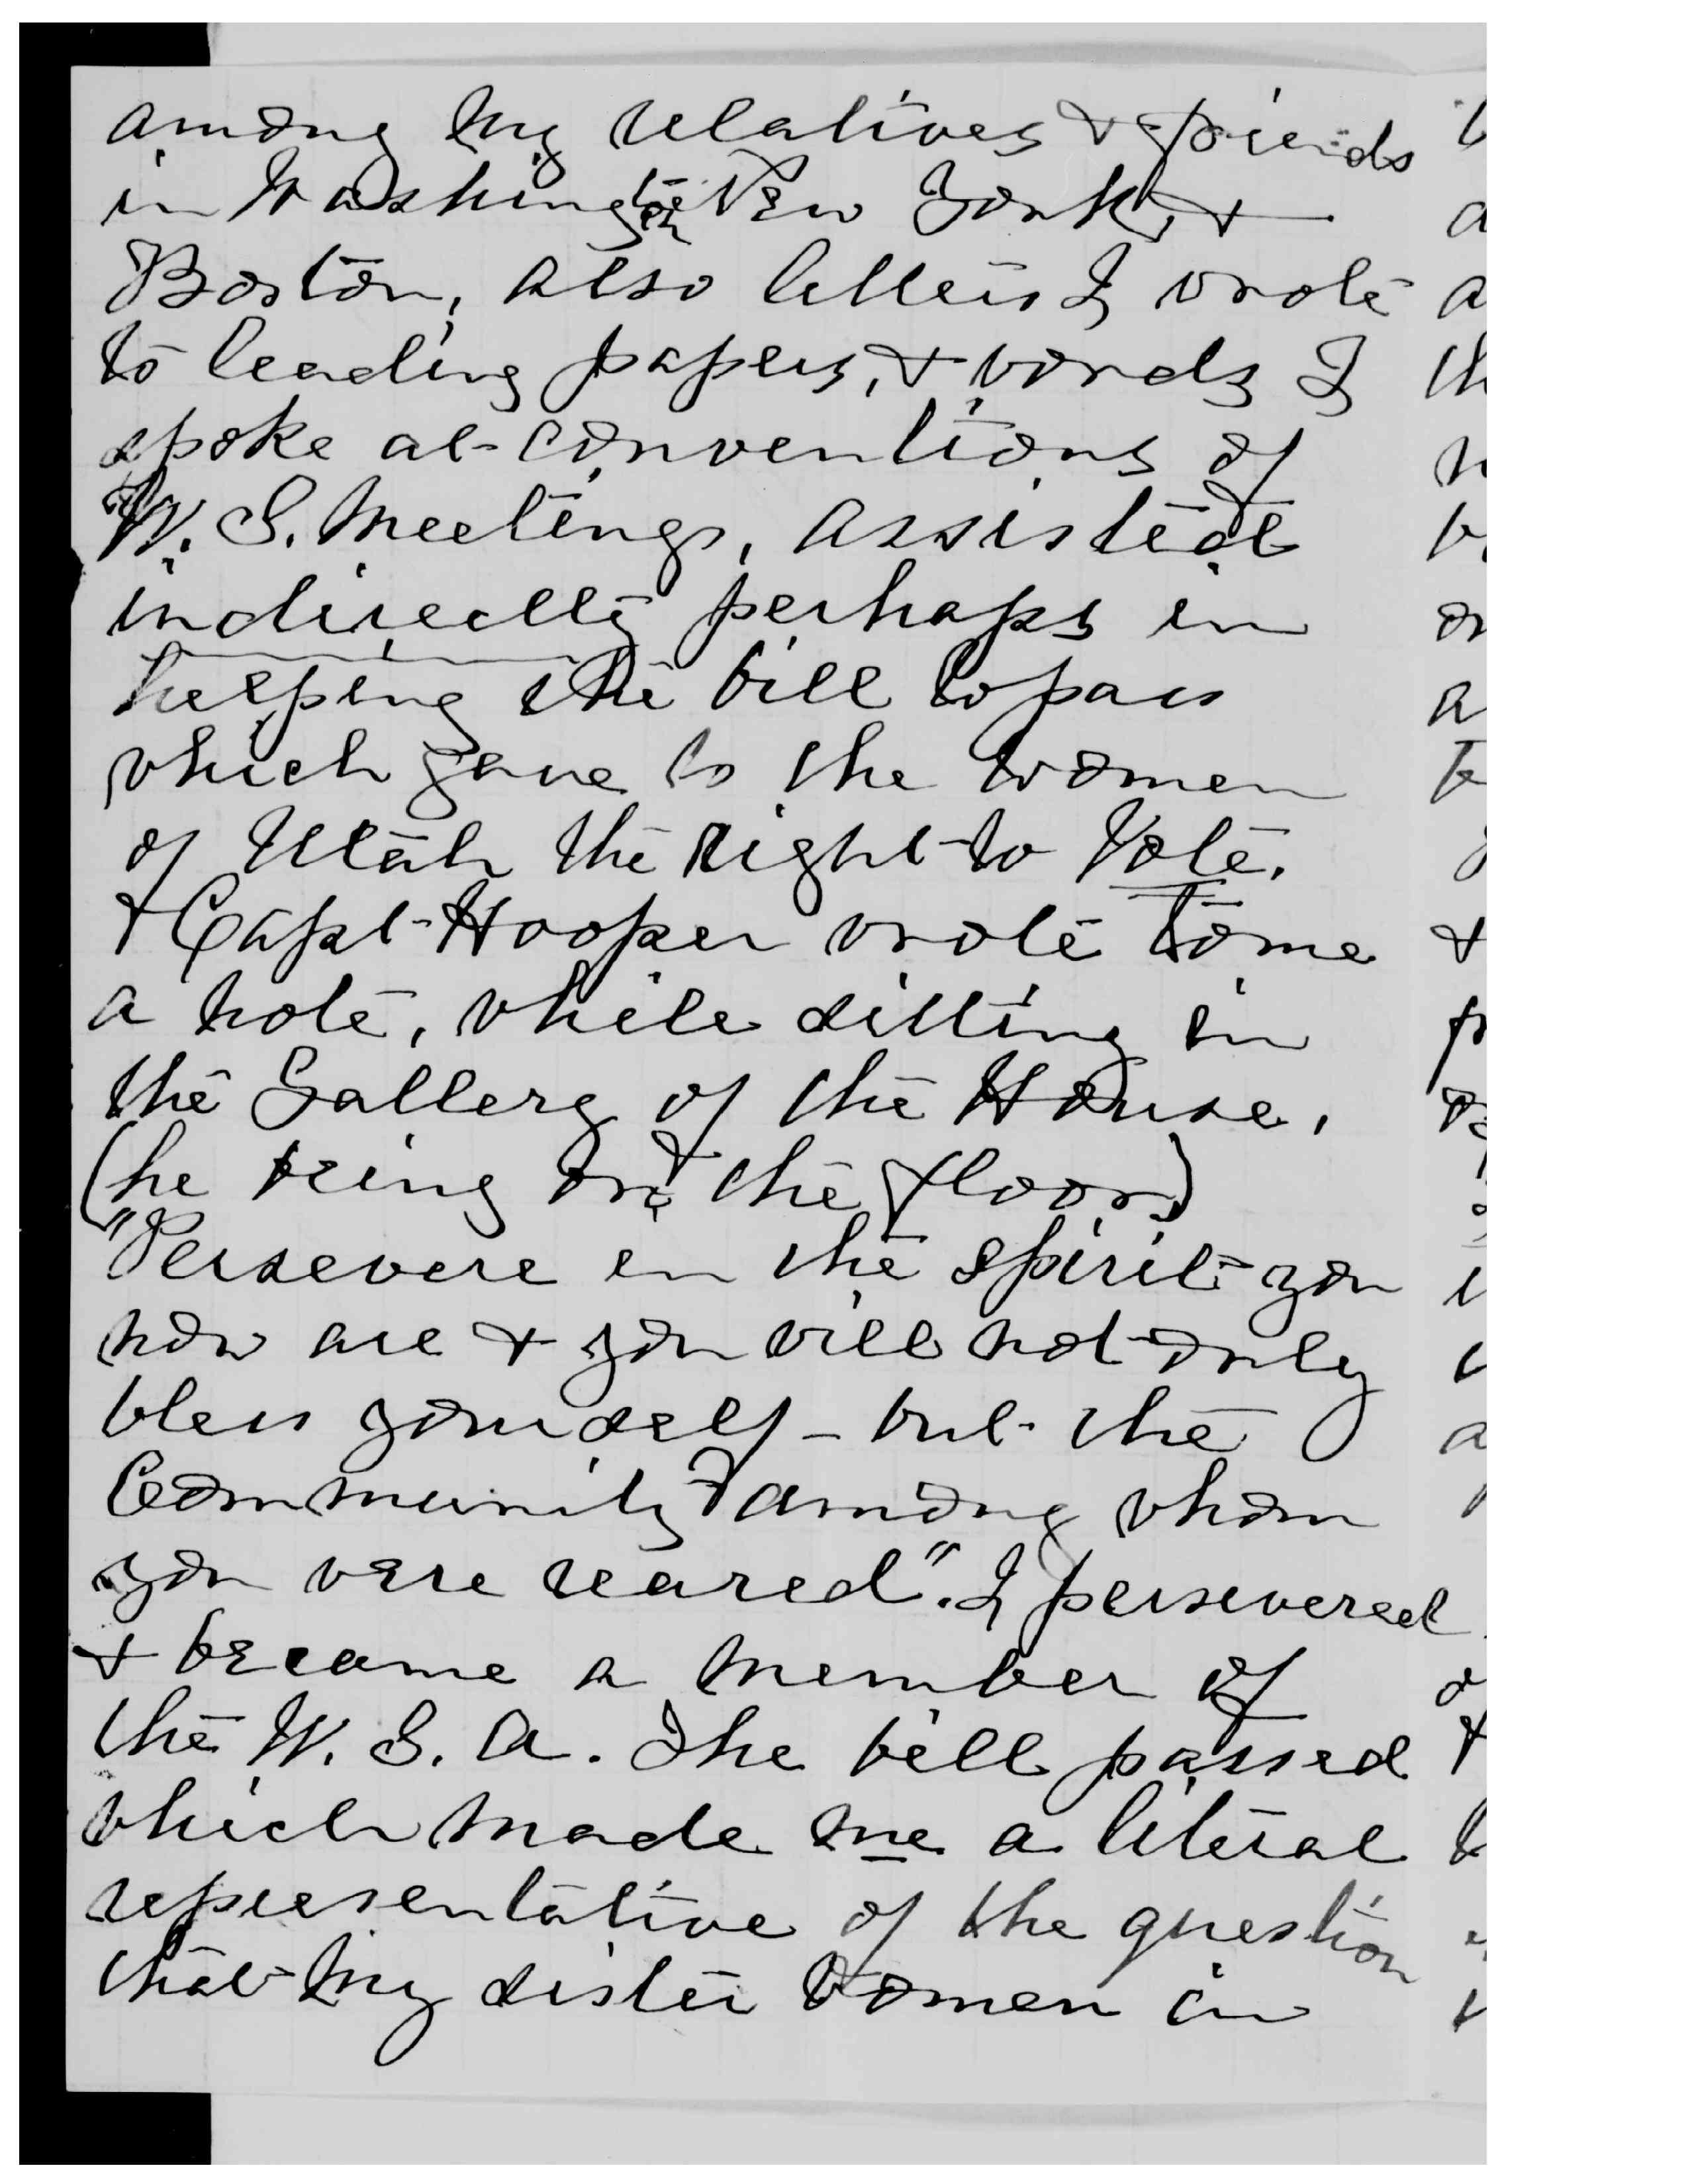 among my relatives & friends
in Washington New York, &
Boston, also letters I wrote
to leading papers, & words I
spoke at conventions of
W. S. Meetings, assisted
indirectly perhaps in
helping the bill to pass
which gave to the women
of Utah the Right to Vote.
& Capt Hooper wrote to me
a note, while sitting in
the Gallery of the House,
(he being on the floor)
"Persevere in the spirit you
now are & you will not only
bless yourself - but the
Community among whom
you were reared". I persevered
& became a member of
the W. S. A. The bill passed
which made me a literal
representative of the question
that my sister women in